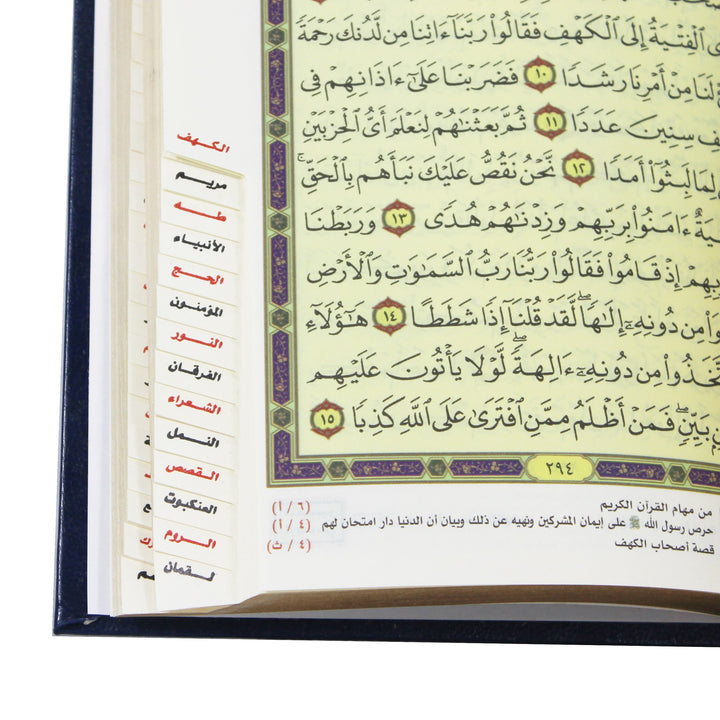 الفتية إلى ٱلۡكَهۡفِ فَقَالُواْ رَبَّنَآ ءَاتِنَا مِن لَّدُنكَ رَحۡمَةٗ
لَنَا مِنۡ أَمۡرِنَا رَشَدٗا ١٠ فَضَرَبۡنَا عَلَىٰٓ ءَاذَانِهِمۡ فِي
سِنِينَ عَدَدٗا ١١ ثُمَّ بَعَثۡنَٰهُمۡ لِنَعۡلَمَ أَيُّ ٱلۡحِزۡبَيۡنِ
لِمَا لَبِثُوٓاْ أَمَدٗا ١٢ نَّحۡنُ نَقُصُّ عَلَيۡكَ نَبَأَهُم بِٱلۡحَقِّۚ
ءَامَنُواْ بِرَبِّهِمۡ وَزِدۡنَٰهُمۡ هُدٗى ١٣ وَرَبَطۡنَا
إِذۡ قَامُواْ فَقَالُواْ رَبُّنَا رَبُّ ٱلسَّمَٰوَٰتِ وَٱلۡأَرۡضِ
مِن دُونِهِۦٓ إِلَٰهٗاۖ لَّقَدۡ قُلۡنَآ إِذٗا شَطَطًا ١٤ هَٰٓؤُلَآءِ
مِن دُونِهِۦٓ ءَالِهَةٗۖ لَّوۡلَا يَأۡتُونَ عَلَيۡهِم
بَيِّنٖۖ فَمَنۡ أَظۡلَمُ مِمَّنِ ٱفۡتَرَىٰ عَلَى ٱللَّهِ كَذِبٗا ١٥
٢٩٤
من مهام القرآن الكريم (٦ / أ)
حرص رسول الله ﷺ على إيمان المشركين ونهيه عن ذلك وبيان أن الدنيا دار امتحان لهم (٤ / أ)
قصة أصحاب الكهف (٤ / ث)
الكهف
مريم
طه
الأنبياء
الحج
المؤمنون
النور
الفرقان
الشعراء
النمل
القصص
العنكبوت
الروم
لقمان